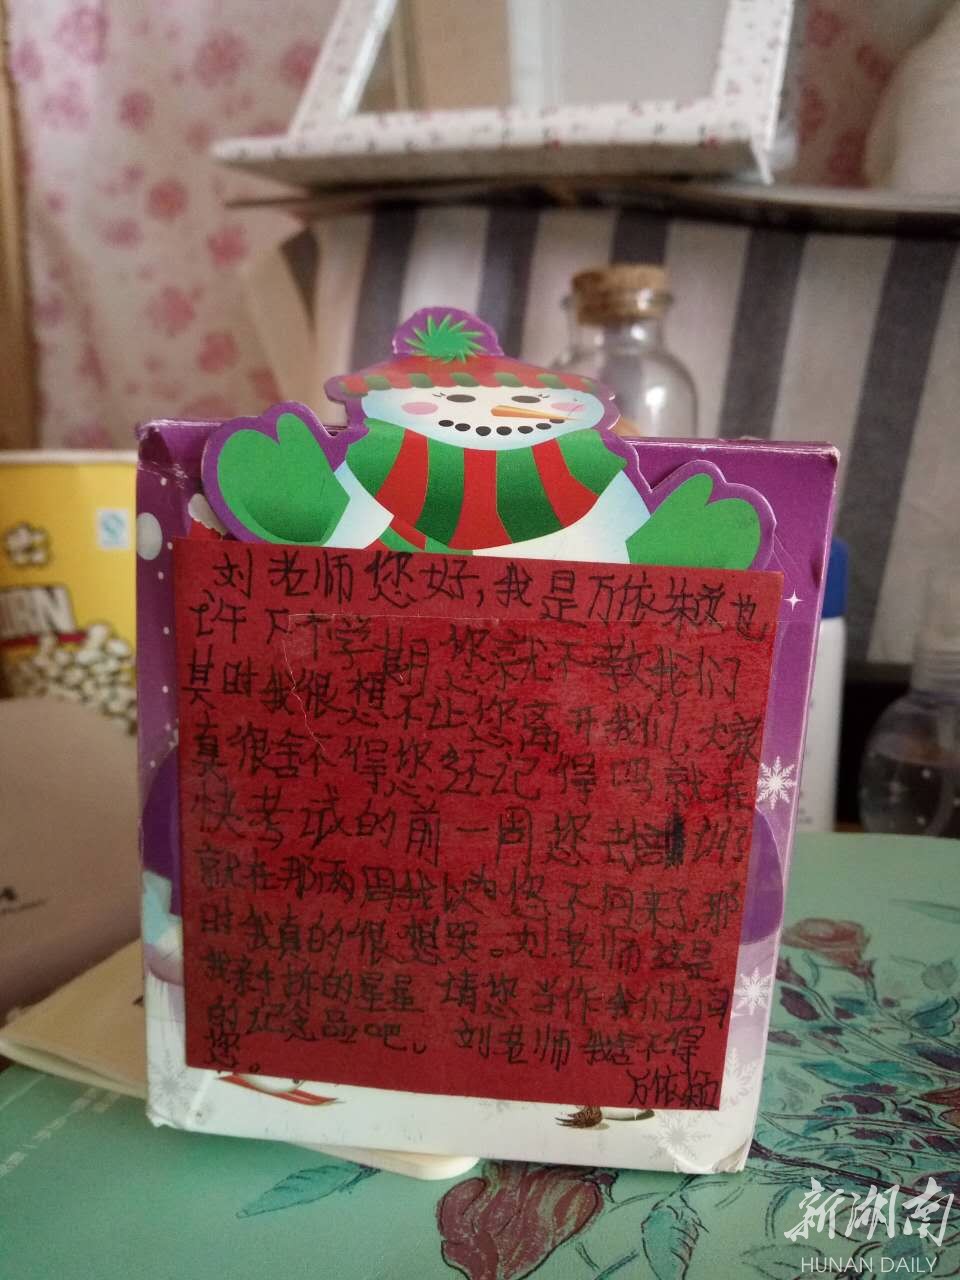 刘老师您好,我是万依颖也
许下个学期您就不教我们
其时我很想不让您离开我们,大家
真很舍不得您,还记得吗就在
快考试的前一周您去培训了
就在那两周我以为您不回来了,那
时我真的很想哭。刘老师这是
我亲手折的星星请您当作我们之间
的记念品吧。刘老师我舍不得
您。
万依颖
RN
新湖南
HUNAN DAILY